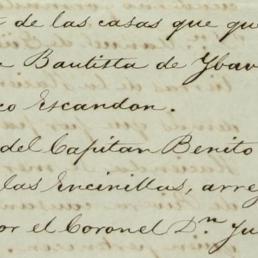 de las casas que que
Bautista de Ybav
co Escandon.
del Capitan Benito
las Encinillas, arre
por el Coronel Dn. Ju